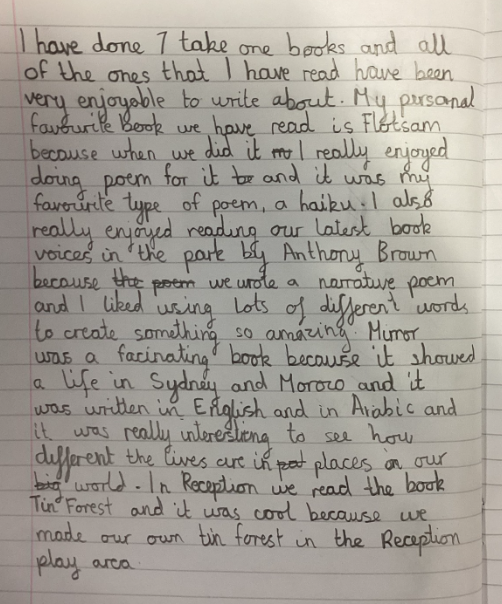 I have done 7 take one books and all
of the ones that I have read have been
very enjoyable to write about. My personal
favourite Book we have read is Flotsam
because when we did it I really enjoyed
doing poem for it and it was my
favourite type of poem, a haiku. I also
really enjoyed reading our latest book
voices in the park by Anthony Brown
because the poem we wrote a narrative poem
and I liked using lots of different words
to create something so amazing. Mirror
was a facinating book because it showed
a life in Sydney and Moroco and it
was written in English and in Arabic and
it was really interesting to see how
different the lives are in places in our
big world. In Reception we read the book
Tin Forest and it was cool because we
made our own tin forest in the Reception
play area.